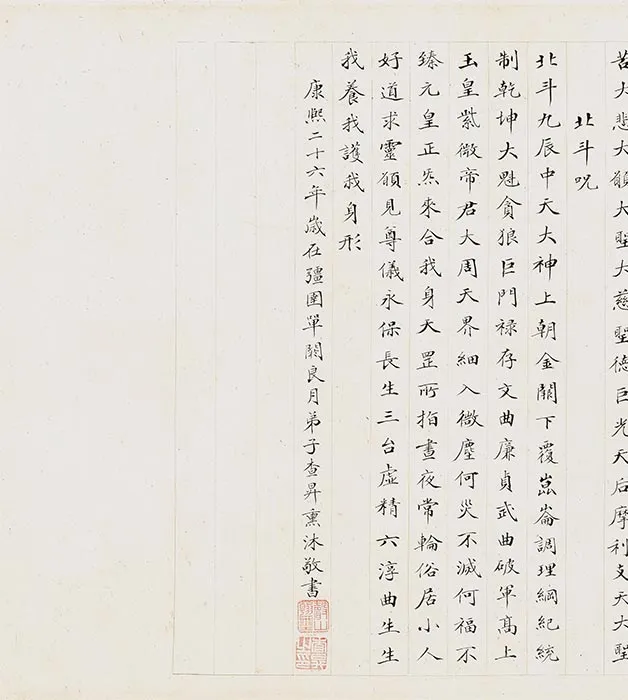 苦大悲大願大聖大慈聖德巨光天后摩利支天大聖
北斗呪
北斗九辰中天大神上朝金闕下覆崑崙調理綱紀統
制乾坤大魁貪狼巨門祿存文曲廉貞武曲破軍髙上
玉皇紫微帝君大周天界細入微塵何災不滅何福不
臻元皇正炁來合我身天罡所指晝夜常輪俗居小人
好道求靈願見尊儀永保長生三台虛精六淳曲生生
我養我護我身形
康熙二十六年歲在彊圉單閼良月弟子查昇熏沐敬書